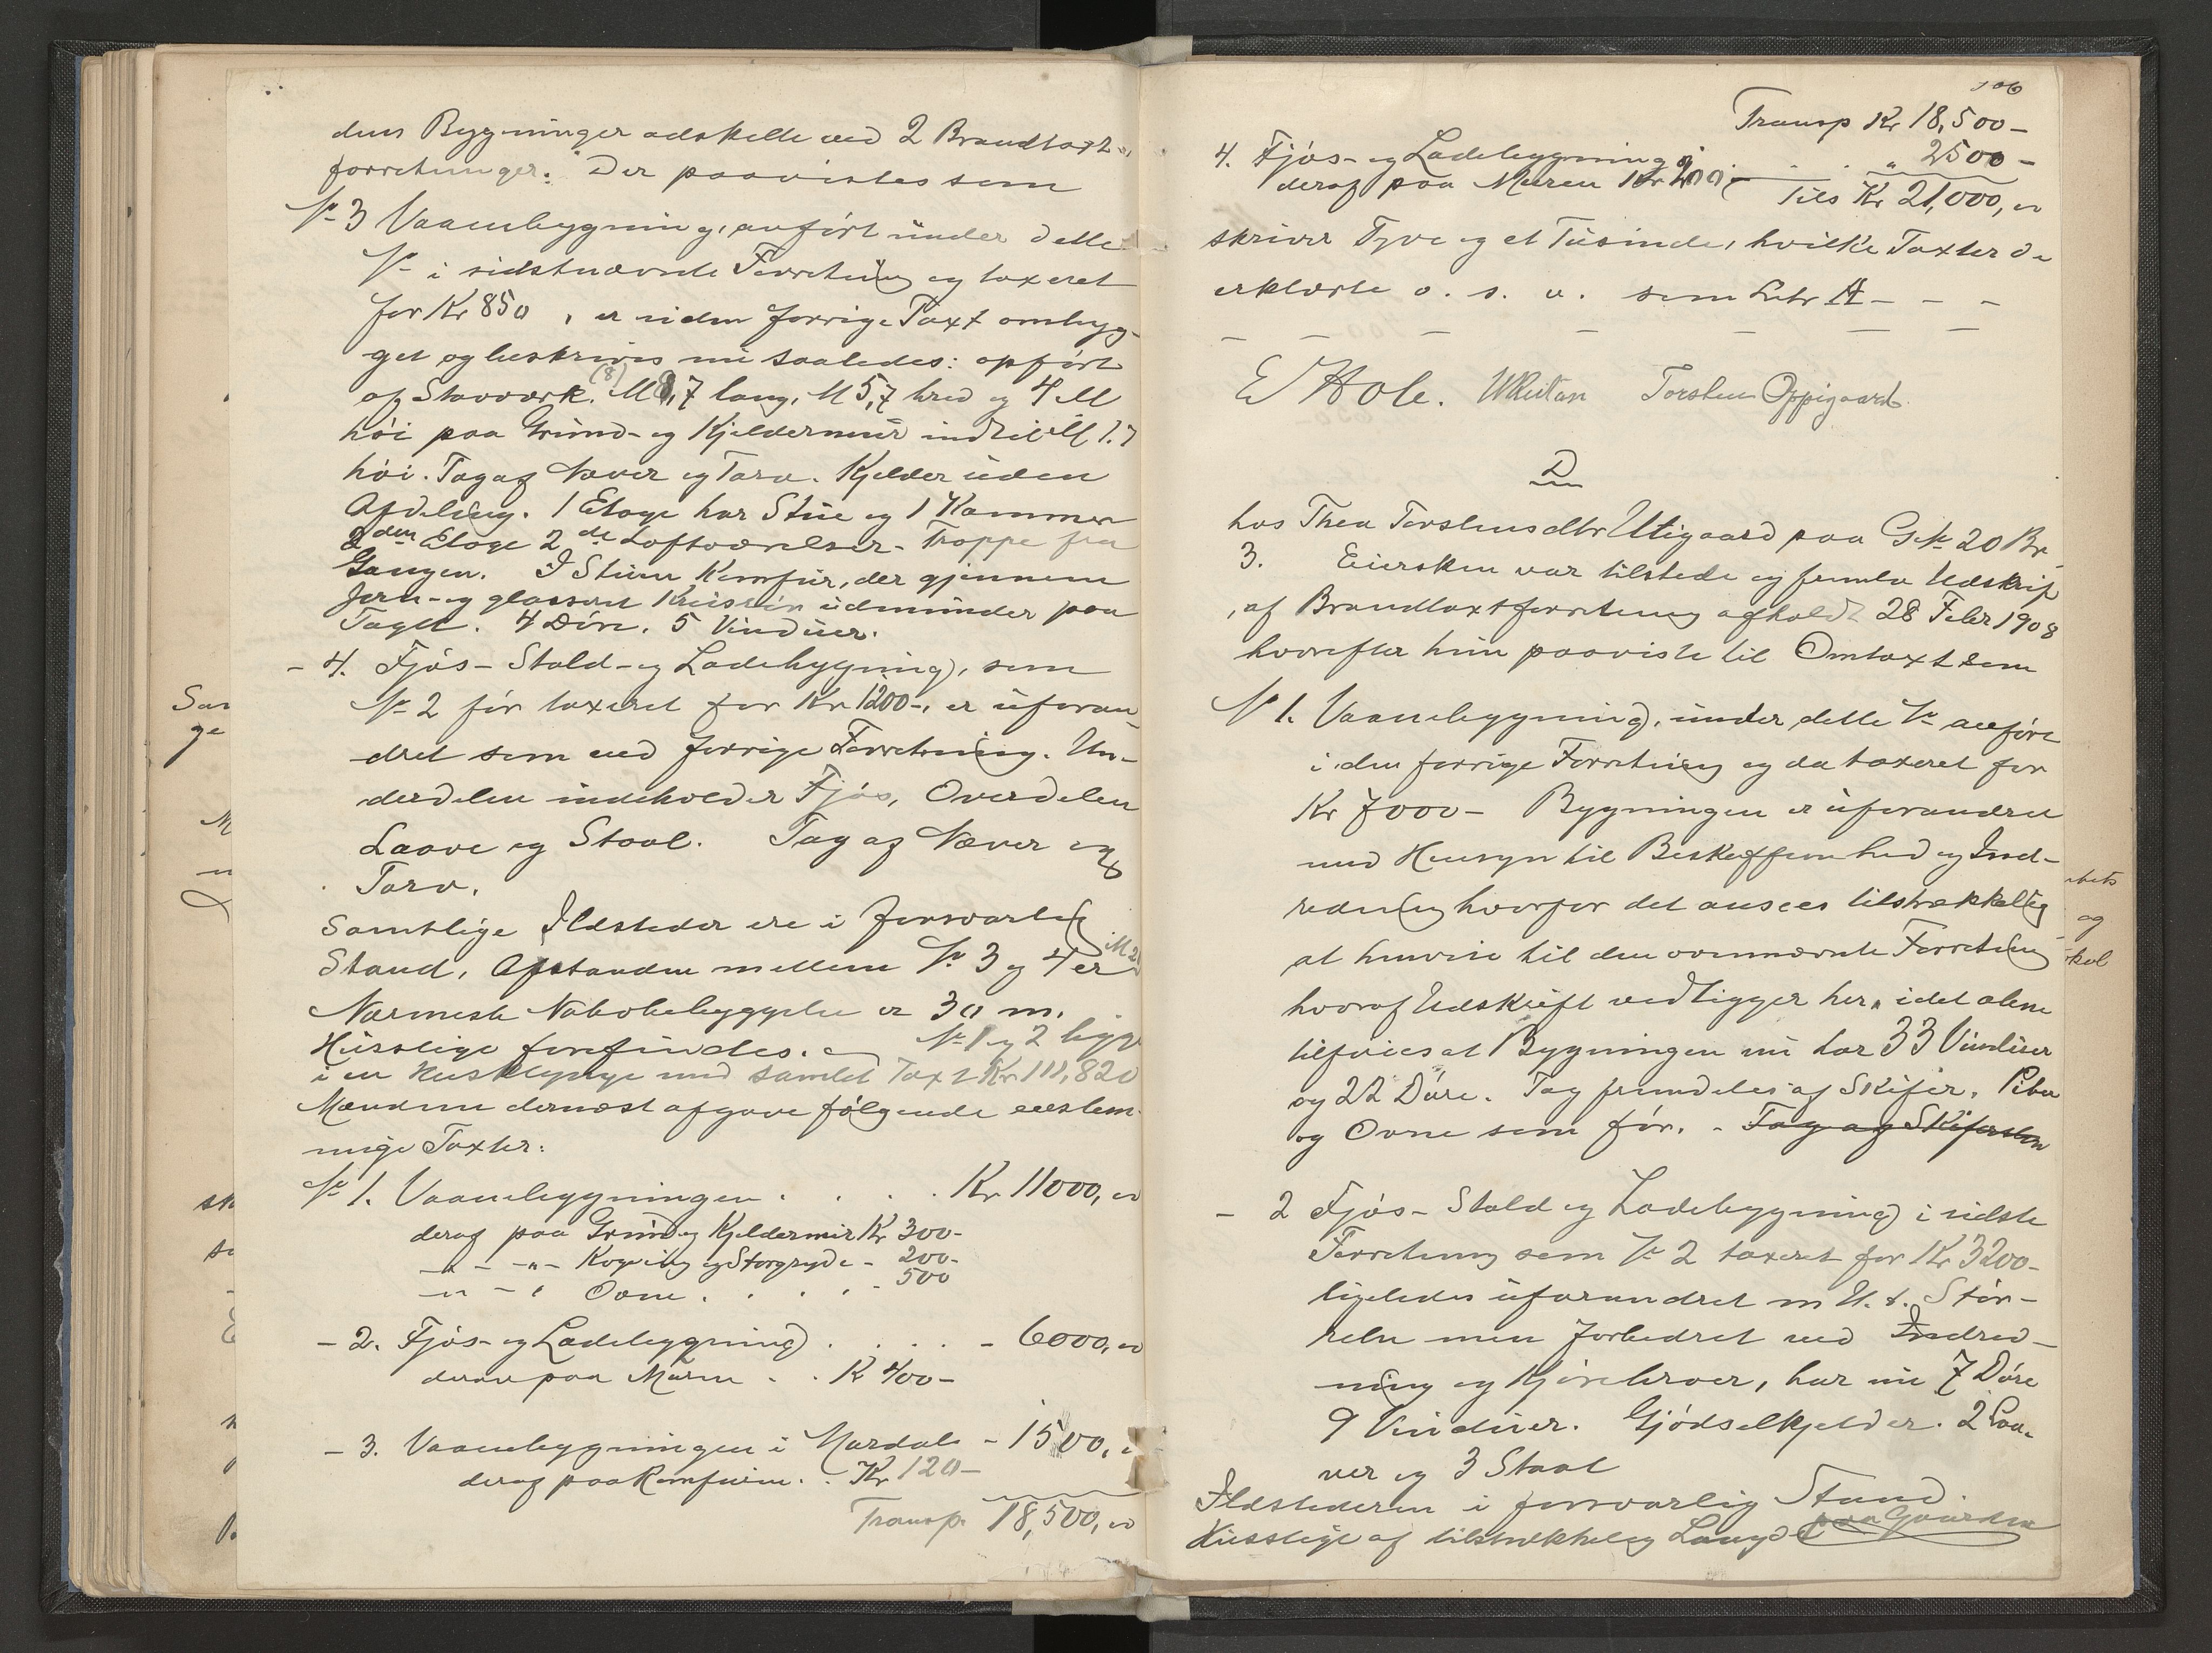 dens Bygninger adskelte ved 2 Brandtaxt
forretninger. Der paavistes som
No 3 Vaanebygning, anført under dette
No i sidstnævnte Forretning og taxeret
for Kr 850, er siden forrige Taxt ombyg-
get og beskrives nu saaledes: opført
af Stavværk. (8) M 8,7 lang, M 5,7 bred og 4 M
høi paa Grund- og Kjeldermur indtil M 1.7
høi. Tag af Næver og Torv. Kjelder uden
Afdeling. 1 Etage har Stue og 1 Kammer
2den Etage 2de Loftværelser - Trappe fra
Gangen. I Stuen Komfur, der gjennem
jern- og glasseret Krusrør udmunder paa
Taget. 4 Døre. 5 Vinduer.
- 4. Fjøs - Stald - og Ladebygning, som
No 2 før taxeret for Kr 1200-, er uforan-
dret som ved forrige Forretning. Un-
derdelen indeholder Fjøs, Overdelen
Laave og Staal. Tag af Næver og
Torv.
Samtlige Ildsteder ere i forsvarlig
Stand, Afstanden mellem No 3 og 4 er M 2
Nærmeste Nabobebyggelse er 30 m.
Husstige forefindes. No 1 og 2 ligger
i en Husklynge med samlet Taxt Kr 111,820
Mændene dernæst afgave følgende eenstem-
mige Taxter:
No 1. Vaanebygningen . . . . Kr 11000,
deraf paa Grund og Kjeldermur Kr 300-
- " - " - Kogeing og Storgryde - 200-
- " - " Ovne . . . . - 500
- 2. Fjøs- og Ladebygning . . . . - 6000,
derav paa Muren . . K 400-
- 3. Vaanebygningen i Mardal - 1500,
deraf paa Komfuren . . Kr 120-
Transp. 18,500,
106
Transp Kr 18,500-
4. Fjøs- og Ladebygning . . . " 2500-
deraf paa Muren Kr 200,-
Tils Kr 21,000,
skriver Tyve og et Tusinde, hvilke Taxter de
erklærte o. s. v. som Litr A - - -
- - - - - -
E Hole. Torsten Oppigaard.
D
hos Thea Torstensdtr Utigaard paa GNo 20 Br
3. Eiersken var tilstede og fremla Udskrif
af Brandtaxtforretning afholdt 28 Febr 1908
hvorefter hun paaviste til Omtaxt som
No 1. Vaanebygning, under dette No anført
i den forrige Forretning og da taxeret for
Kr 7000- Bygningen er uforandret
med Hensyn til Beskaffenhed og Ind-
redning hvorfor det ansees tilstrækkelig
at henvise til den ovennævnte Forretning
hvoraf Udskrift vedligger her, idet alene
tilføies at Bygningen nu har 33 Vinduer
og 22 Døre. Tag fremdeles af Skifer. Piber
og Ovne som før. - Tag af Skifersten
- 2 Fjøs- Stald og Ladebygning i sidste
Forretning som No 2 taxeret for Kr 3200-
ligeledes uforandret m H. t. Stør-
relse men forbedret ved Indred-
ning og Kjørebroer, har nu 7 Døre
9 Vinduer. Gjødselkjelder. 2 Laa-
ver og 3 Staal
Ildstederen i forsvarlig Stand.
Husstige af tilstrækkelig Længde paa Gaarden